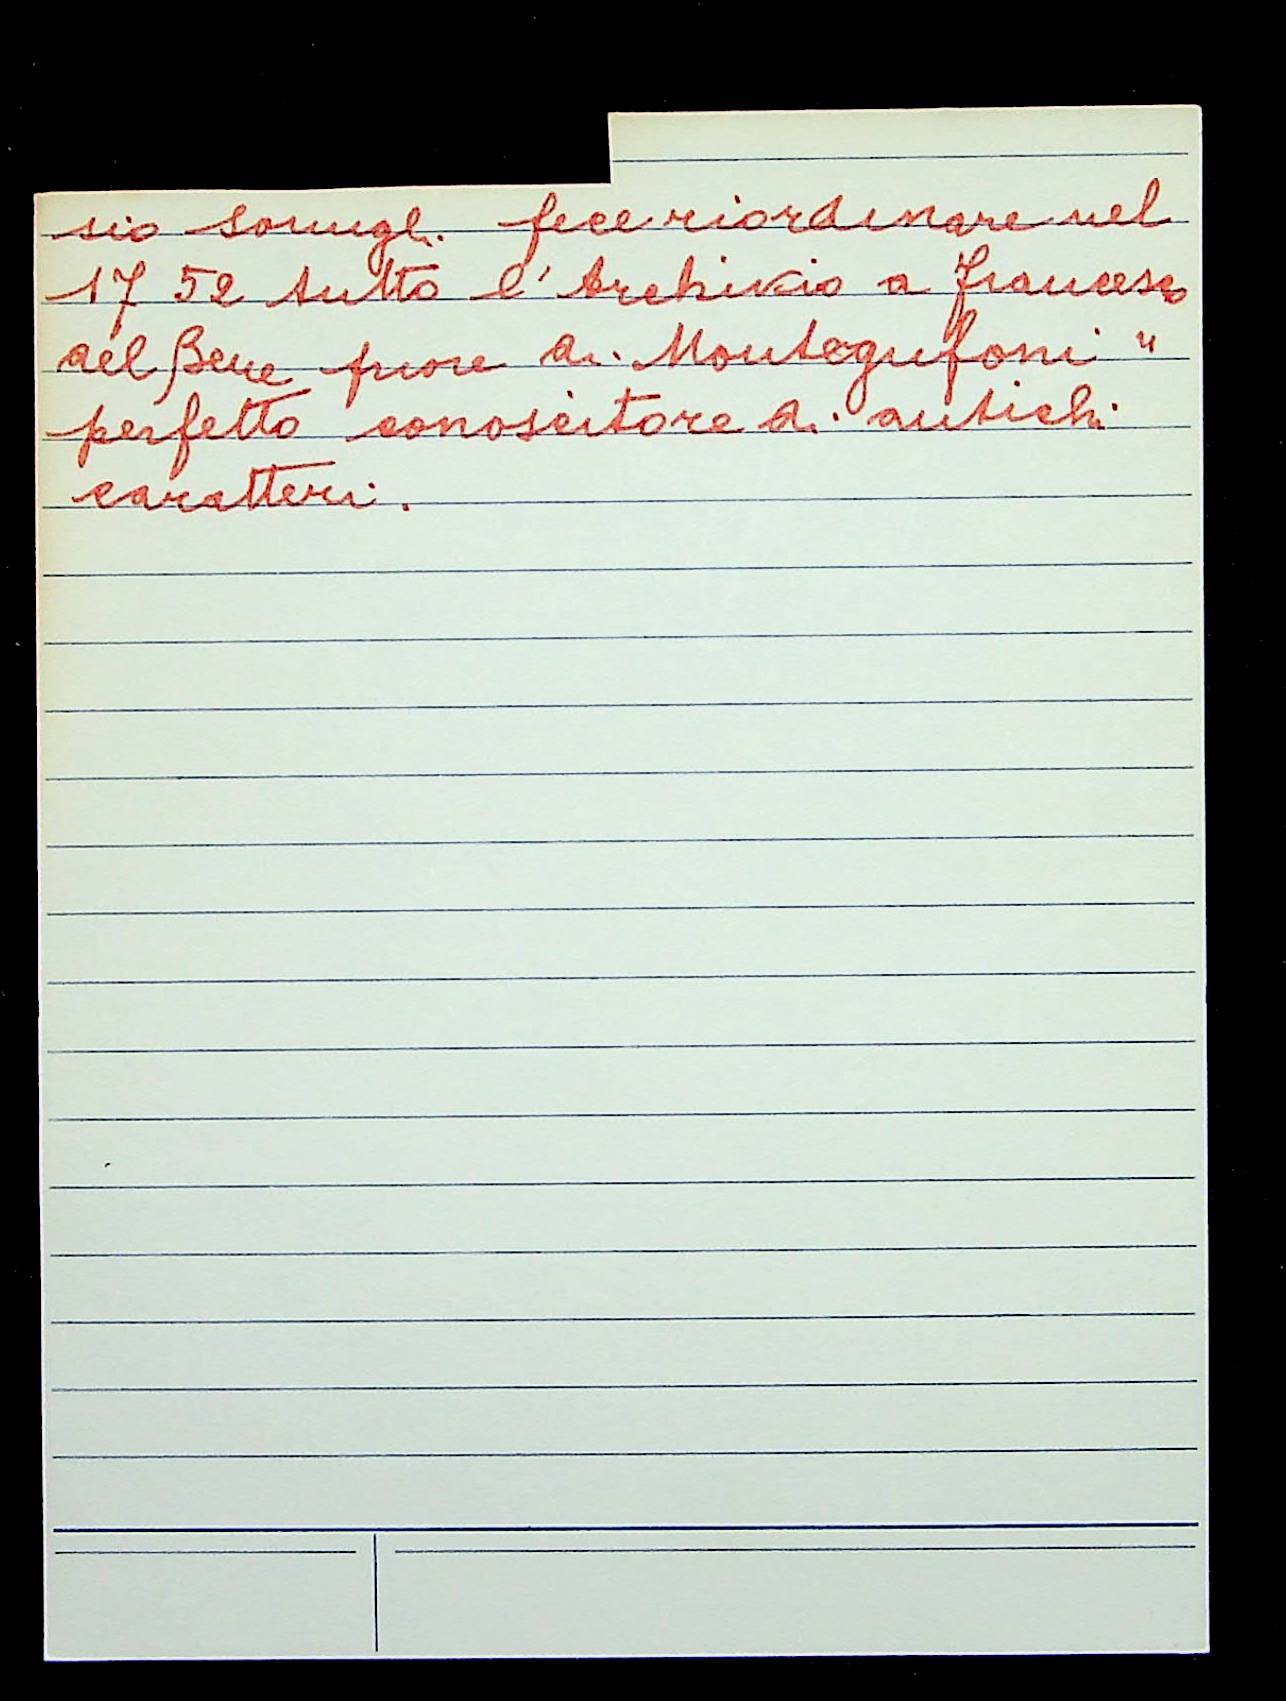 sio Somigli. fece riordinare nel
1752 tutto l'Archivio a Francesco
del Bene priore di Montegufoni "
perfetto conoscitore di antichi
caratteri.